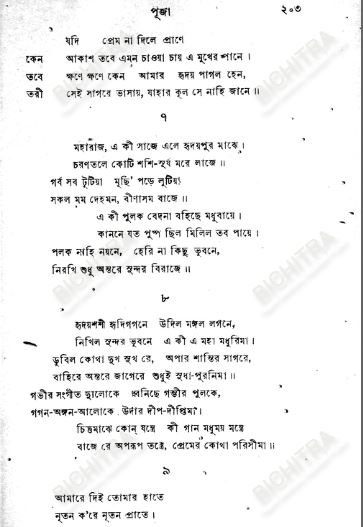 পূজা ২০৩
যদি প্রেম না দিলে প্রাণে
কেন আকাশ তবে এমন চাওয়া চায় এ মুখের পানে ।
তবে ক্ষণে ক্ষণে কেন আমার হৃদয় পাগল হেন,
তরী সেই সাগরে ভাসায়, যাহার কূল সে নাহি জানে ॥
৭
মহারাজ, এ কী সাজে এলে হৃদয়পুর মাঝে ।
চরণতলে কোটি শশি-সূর্য মরে লাজে ॥
গর্ব সব টুটিয়া মূর্ছি' পড়ে লুটিয়া
সকল মম দেহমন, বীণাসম বাজে ॥
এ কী পুলক বেদনা বহিছে মধুবায়ে ।
কাননে যত পুষ্প ছিল মিলিল তব পায়ে ।
পলক নাহি নয়নে, হেরি না কিছু ভুবনে,
নিরখি শুধু অন্তরে সুন্দর বিরাজে ॥
৮
হৃদয়শশী হৃদিগগনে উদিল মঙ্গল লগনে,
নিখিল সুন্দর ভুবনে এ কী এ মহা মধুরিমা ॥
ডুবিল কোথা দুখ সুখ রে, অপার শান্তির সাগরে,
বাহিরে অন্তরে জাগেরে শুধুই সুধা-পুরনিমা ॥
গভীর সংগীত দ্যুলোকে ধ্বনিছে গম্ভীর পুলকে,
গগন-অঙ্গন-আলোকে উদার দীপ-দীপ্তিমা ।
চিত্তমাঝে কোন্ যন্ত্রে কী গান মধুময় মন্ত্রে
বাজে রে অপরূপ তন্ত্রে, প্রেমের কোথা পরিসীমা ॥
৯
আমারে দিই তোমার হাতে
নূতন ক'রে নূতন প্রাতে ।
BICHITRA
BICHITRA
BICHITRA
BICHITRA
BICHITRA